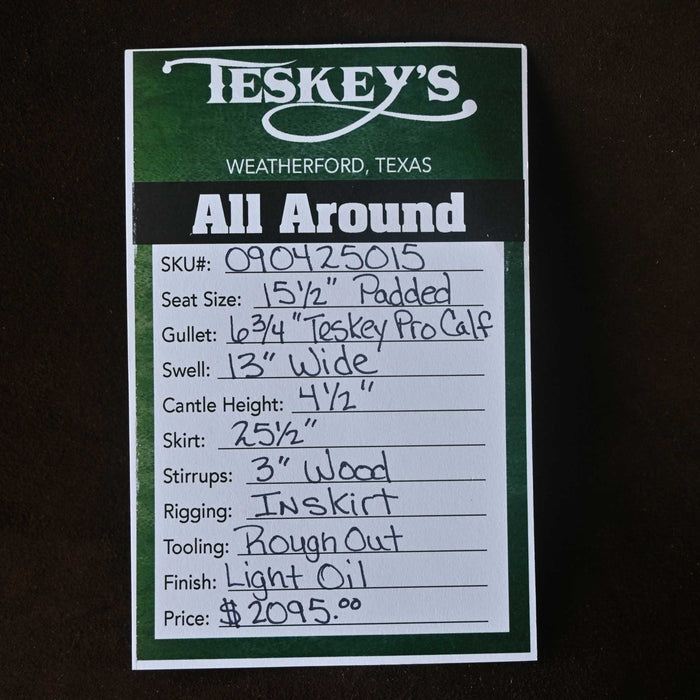 TESKEY'S
WEATHERFORD, TEXAS
All Around
SKU#: 090425015
Seat Size: 15½" Padded
Gullet: 6¾" Teskey Pro Calf
Swell: 13" Wide
Cantle Height: 4½"
Skirt: 25½"
Stirrups: 3" Wood
Rigging: Inskirt
Tooling: Rough Out
Finish: Light Oil
Price: $2095.00